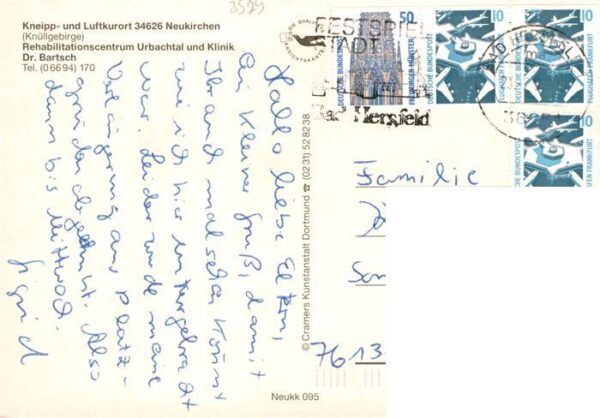 3529
Kneipp- und Luftkurort 34626 Neukirchen
(Knüllgebirge)
Rehabilitationscentrum Urbachtal und Klinik
Dr. Bartsch
Tel. (0 66 94) 170
FESTSPIEL
STADT
Bad Hersfeld
50
DEUTSCHE BUNDESPOST
FREIBURGER MÜNSTER
10
DEUTSCHE BUNDESPOST
FLUGHAFEN FRANKFURT
10
DEUTSCHE BUNDESPOST
10
DEUTSCHE BUNDESPOST
Hallo liebe Eltern,
ein kleiner Gruß, damit
Ihr auch mal sehen könnt
wie ich hier untergebracht
war. Leider wurde meine
Verlängerung aus Platz-
gründen abgelehnt. Also
dann bis Mittwoch.
Sigrid
© Cramers Kunstanstalt Dortmund ☎ (0231) 528238
Familie
7613
Neukk 095